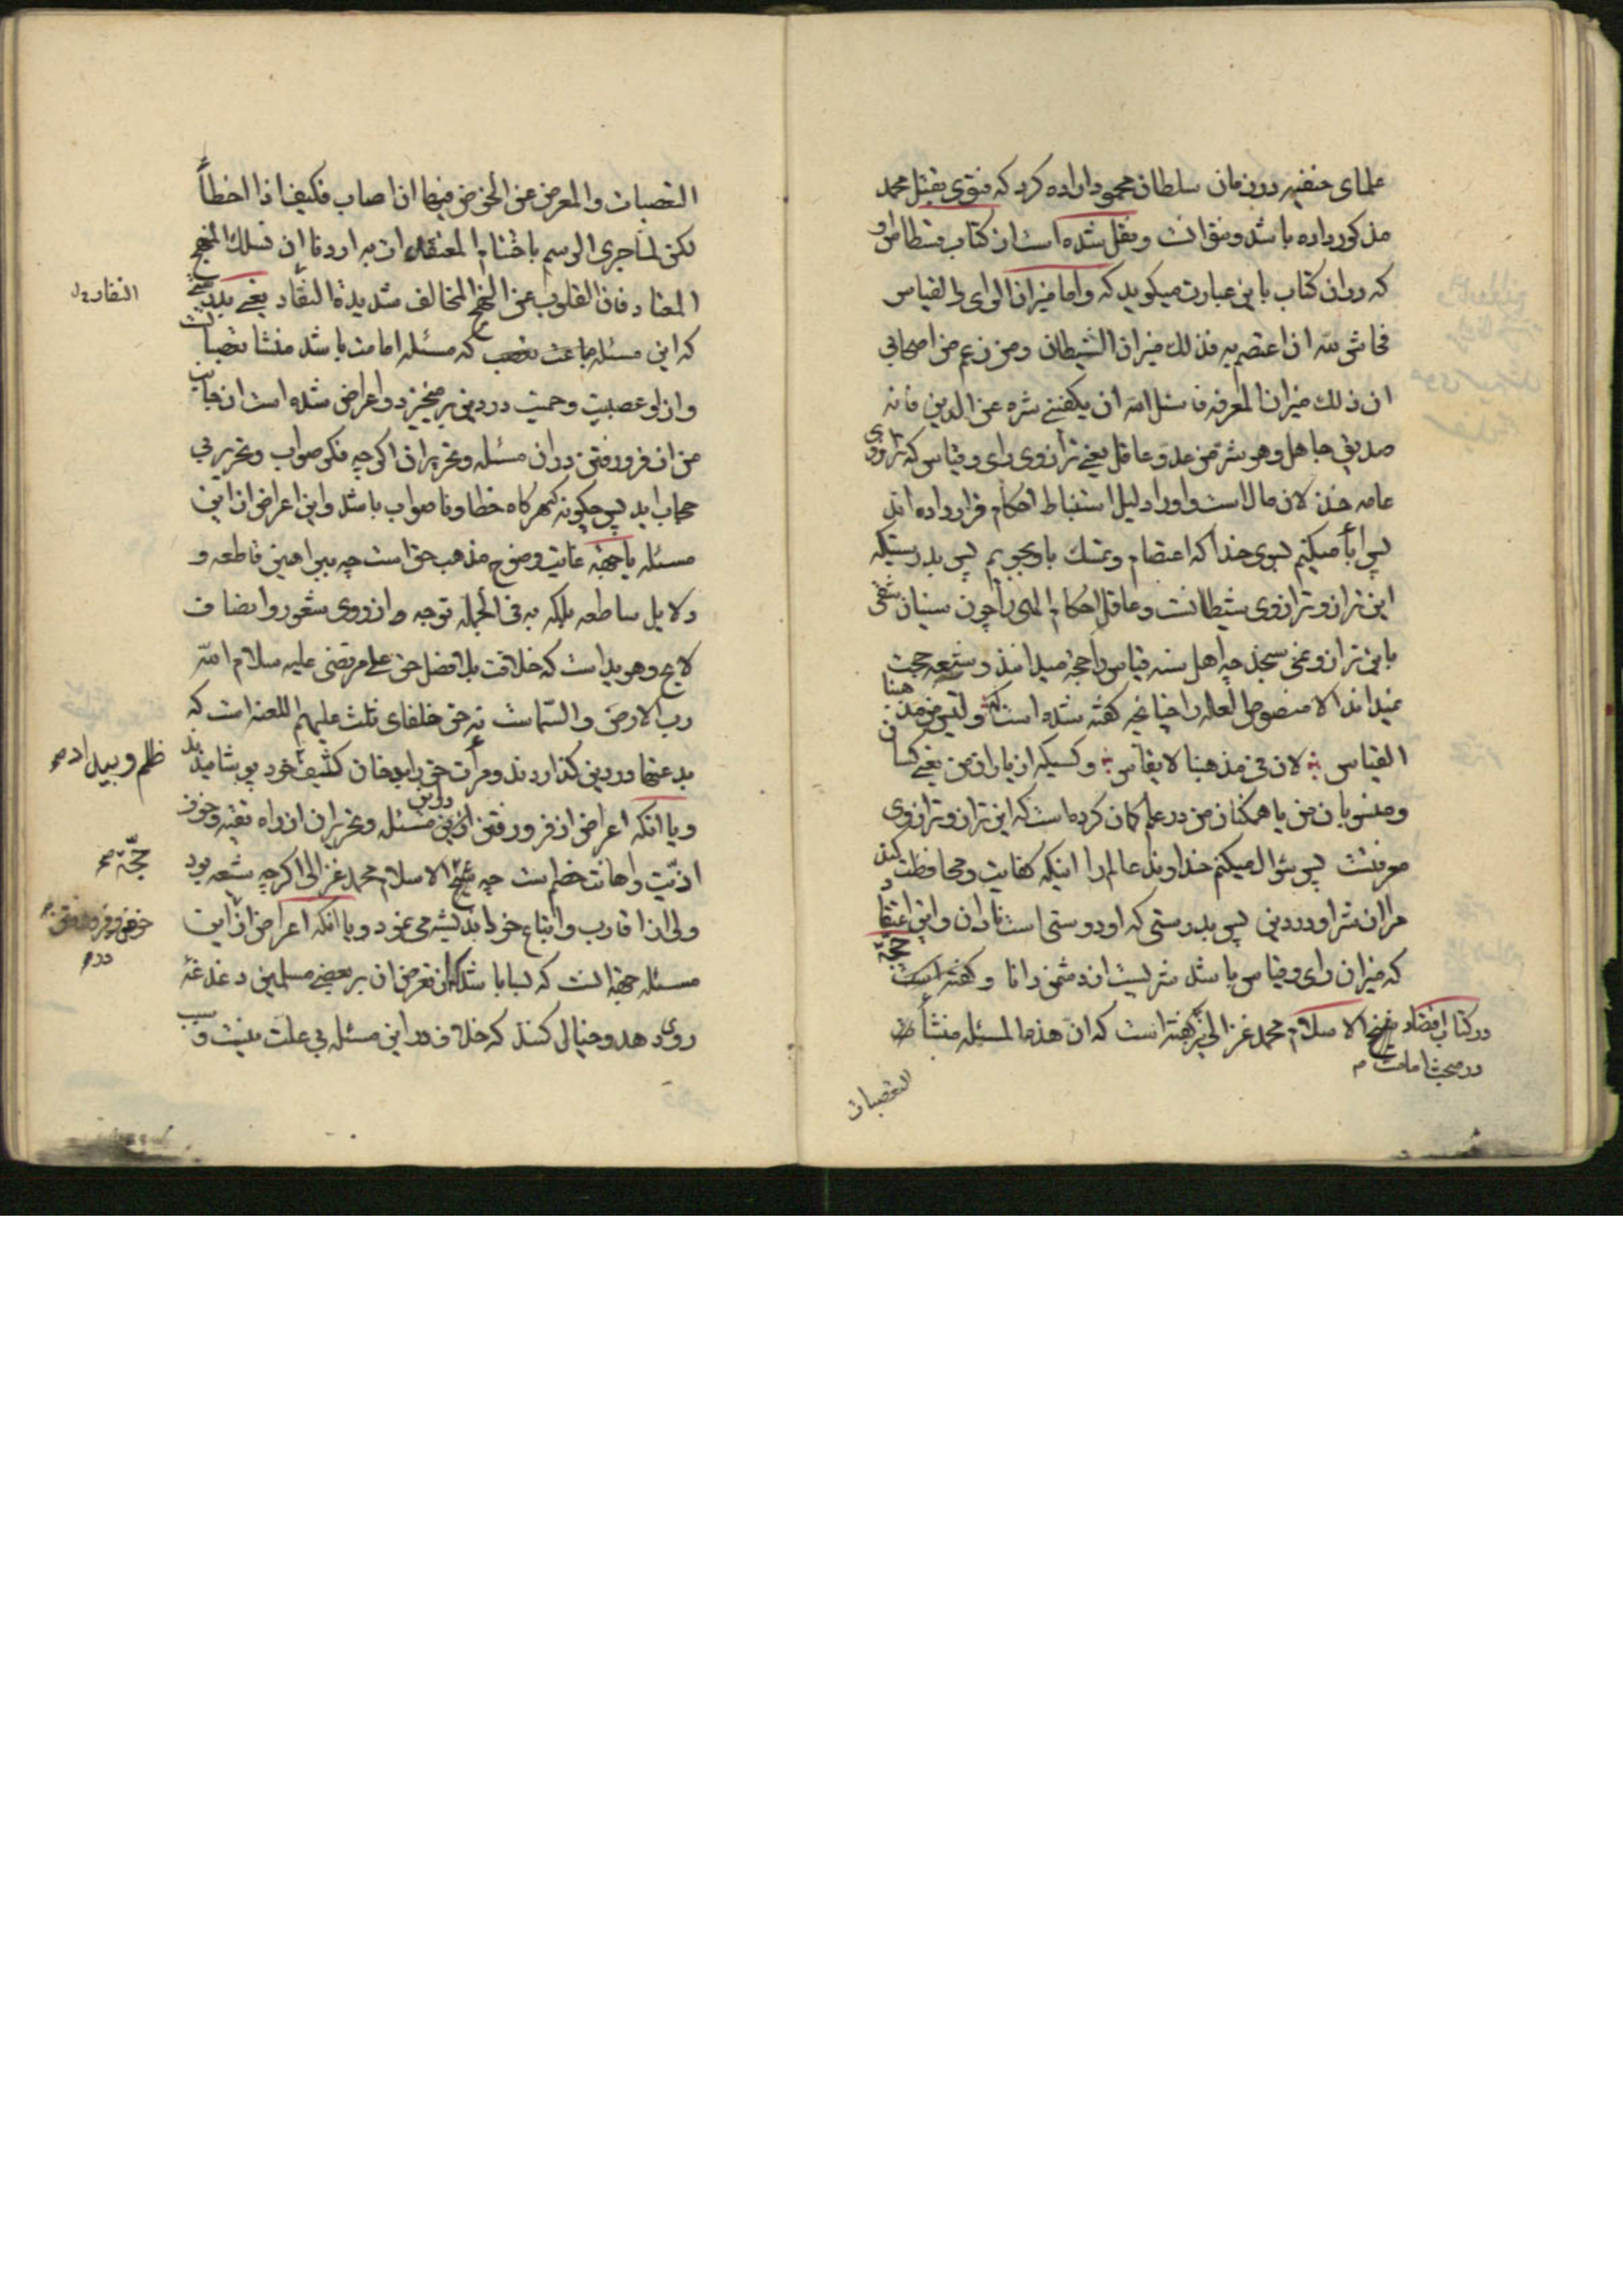 علمای حنفیه در زمان سلطان محمود اراده کرد که فتوی بقتل محمد
مذکور داده باشد و نقل شده است از کتاب قسطاس او
که در ان کتاب باین عبارت میکوید که واما میزان الرای والقیاس
فحاش لله ان اعتصم به فذلک میزان الشیطان ومن زعم من اصحابی
ان ذلک میزان المعرفه فاسئل الله ان یکفینی شره عن الدین فانه
صدیق جاهل وهو شر من عدو عاقل یعنی ترازوی رای و قیاس که ترازوی
عامه خذلان مال است واو را دلیل استنباط احکام قرار داده اند
پس ابا میکنم بسوی خدا که اعتصام و تمسک باو بجویم پس بدرستیکه
این ترازو ترازوی شیطانست و عاقل احکام الهی را چون سنیان شقی
باین ترازو نمی سنجد چه اهل سنه قیاس را حجة میدانند و شیعه حجت
نمیدانند الا منصوص العله را چنانچه کفته شده است که و لیس من مذهبنا
القیاس لان فی مذهبنا لا یقاس و کسیکه از یاران من یعنی کسان
و منسوبان من یا همکنان من در علم کمان کرده است که این ترازو ترازوی
معرفتست پس سؤال میکنم خداوند عالم را اینکه کفایت و محافظت کند
مرا از شر او در دین پس بدرستی که او دوستی است نادان و این اعتقاد
که میزان رای و قیاس باشد شریست از دشمن دانا و کفته است حجة
در کتاب اقتصاد شیخ الاسلام محمد غزالی نیز کفته است که ان هذه المسئله منشأ
در مبحث امامت م
التعصبات
التعصبات والمعرض عن الخوض فیها ان اصاب فکیف اذا اخطأ
لکن لما جری الرسم باختتام المعتقدات به اردنا ان نسلک المنهج
المعتاد فان القلوب عن المنهج المخالف شدیدة النفار یعنی بدرستی
النفار ل
که این مسئله که مسئله امامت باشد منشا تعصبات
وازو عصبیت و حمیت در دین برمیخیزد و اعراض شده است از جانب
من از فرو رفتن در ان مسئله و تحریر ان اکرچه فکر صواب و تحریر بی
حجاب اید پس چکونه که هرکاه خطا و ناصواب باشد و این اعراض از این
مسئله یا بجهة غایت وضوح مذهب حق است چه ببراهین قاطعه و
دلایل ساطعه بلکه به فی الجمله توجه از روی شعور و انصاف
لایح و هویداست که خلافت بلافصل حق علی مرتضی علیه سلام الله
رب الارض والسماست نه حق خلفای ثلث علیهم اللعنه است که
بدعتها در دین کذاردند و مرآت حق را بدخان کثیف خود بپوشانیدند
ظلم و بیداد صح
ویا انکه اعراض از فرو رفتن در این مسئله و تحریر ان از راه تقیه و خوف
اذیت و اهانت خصم است چه شیخ الاسلام محمد غزالی اکرچه شیعه بود
حجّة صح
ولی از اقارب و اتباع خود اندیشه می نمود و یا انکه اعراض از این
خوض و فرو رفتن
در م
مسئله بجهة انست که بسا باشد که از تعرض ان بر بعضی مسلمین دغدغه
روی دهد و خیال کنند که خلاف در این مسئله بی علت نیست و